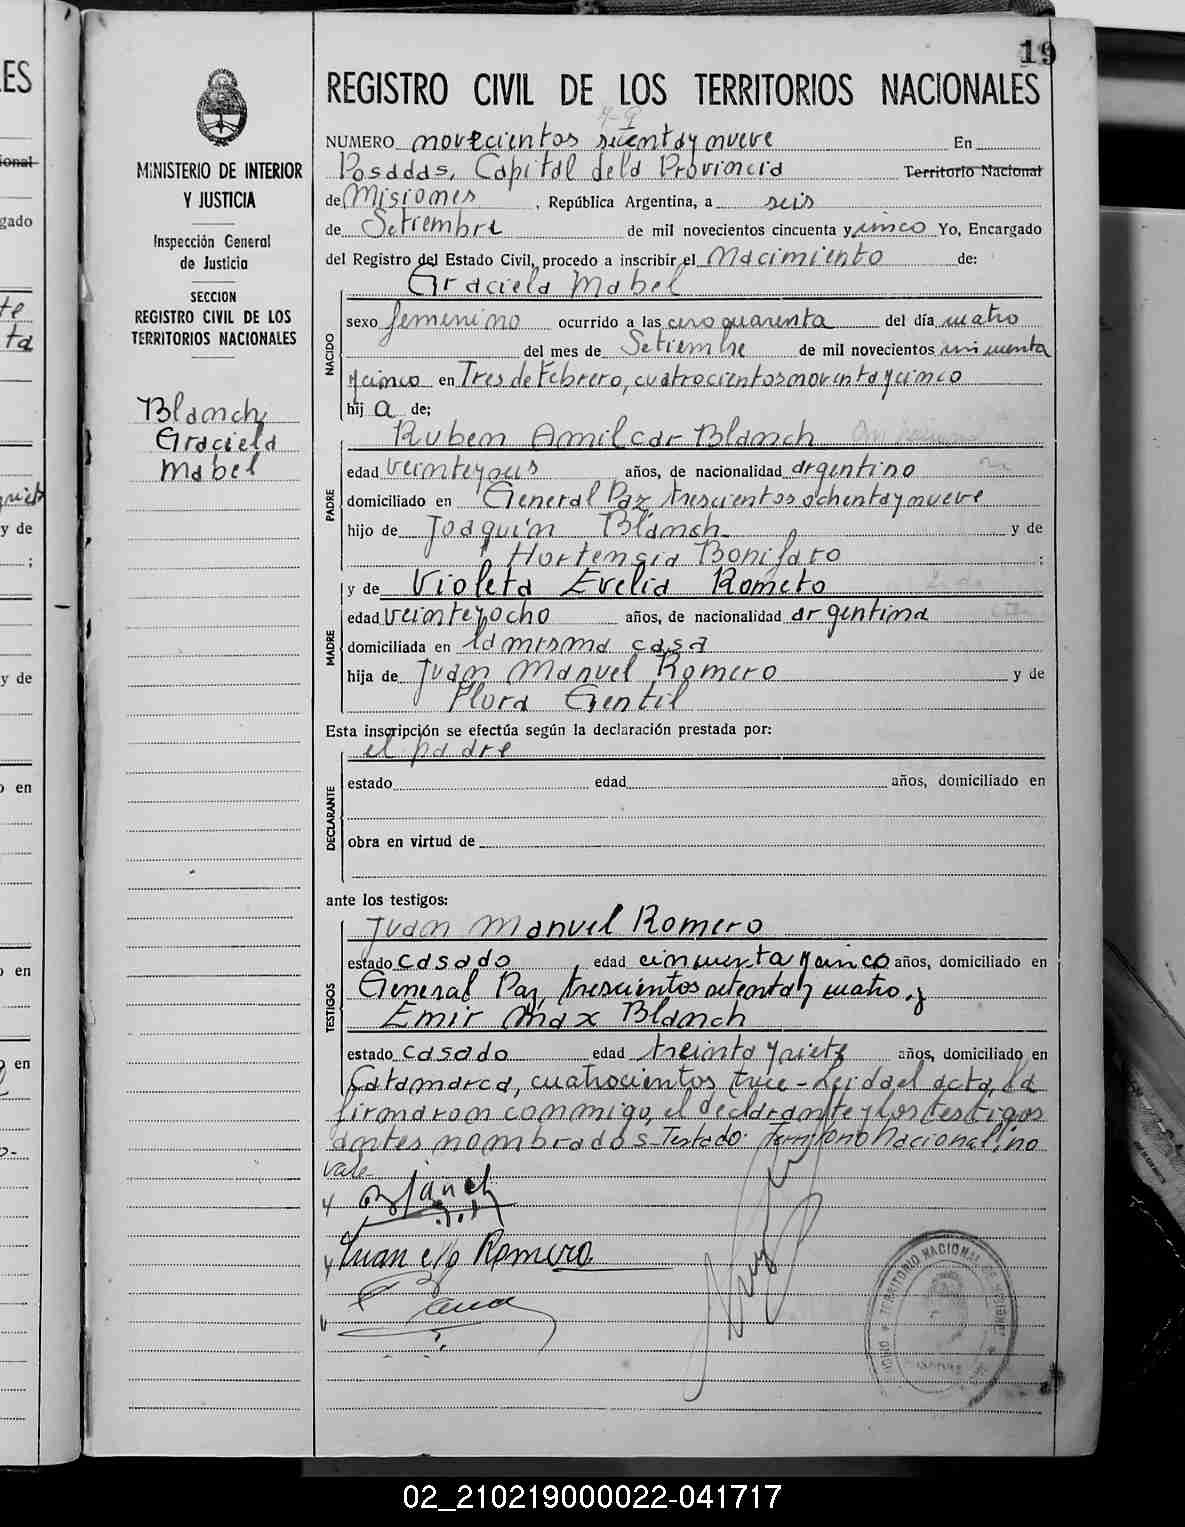 19
REGISTRO CIVIL DE LOS TERRITORIOS NACIONALES
MINISTERIO DE INTERIOR
Y JUSTICIA
Inspección General
de Justicia
SECCION
REGISTRO CIVIL DE LOS
TERRITORIOS NACIONALES
Blanch
Graciela
Mabel
NUMERO novecientos y nueve En
Posadas, Capital dela Provincia Territorio Nacional
de Misiones, República Argentina, a seis
de Setiembre de mil novecientos cincuenta y cinco Yo, Encargado
del Registro del Estado Civil, procedo a inscribir el Nacimiento de:
Graciela Mabel
NACIDO
sexo femenino ocurrido a las cero cuarenta del día cuatro
del mes de Setiembre de mil novecientos cincuenta
y cinco en Tres de Febrero, cuatrocientos noventa y cinco
hij a de;
PADRE
Ruben Amilcar Blanch
edad veinteyseis años, de nacionalidad argentino
domiciliado en General Paz trescientos ochenta y nueve
hijo de Joaquín Blanch y de
Hortensia Bonifato ;
MADRE
y de Violeta Evelia Romero
edad veinteyocho años, de nacionalidad argentina
domiciliada en la misma casa
hija de Juan Manuel Romero y de
Flora Gentil
Esta inscripción se efectúa según la declaración prestada por:
el padre
DECLARANTE
estado edad años, domiciliado en
obra en virtud de
ante los testigos:
TESTIGOS
Juan Manuel Romero
estado casado edad cincuenta y cinco años, domiciliado en
General Paz, trescientos setenta y cuatro, y
Emir Max Blanch
estado casado edad treinta y siete años, domiciliado en
Catamarca, cuatrocientos trece - Leida el acta, la
firmaron conmigo, el declarante y los testigos
antes nombrados - Testado: Territorio Nacional, no
vale -
Blanch
Juan Ml Romero
TERRITORIO NACIONAL DE MISIONES
02_210219000022-041717